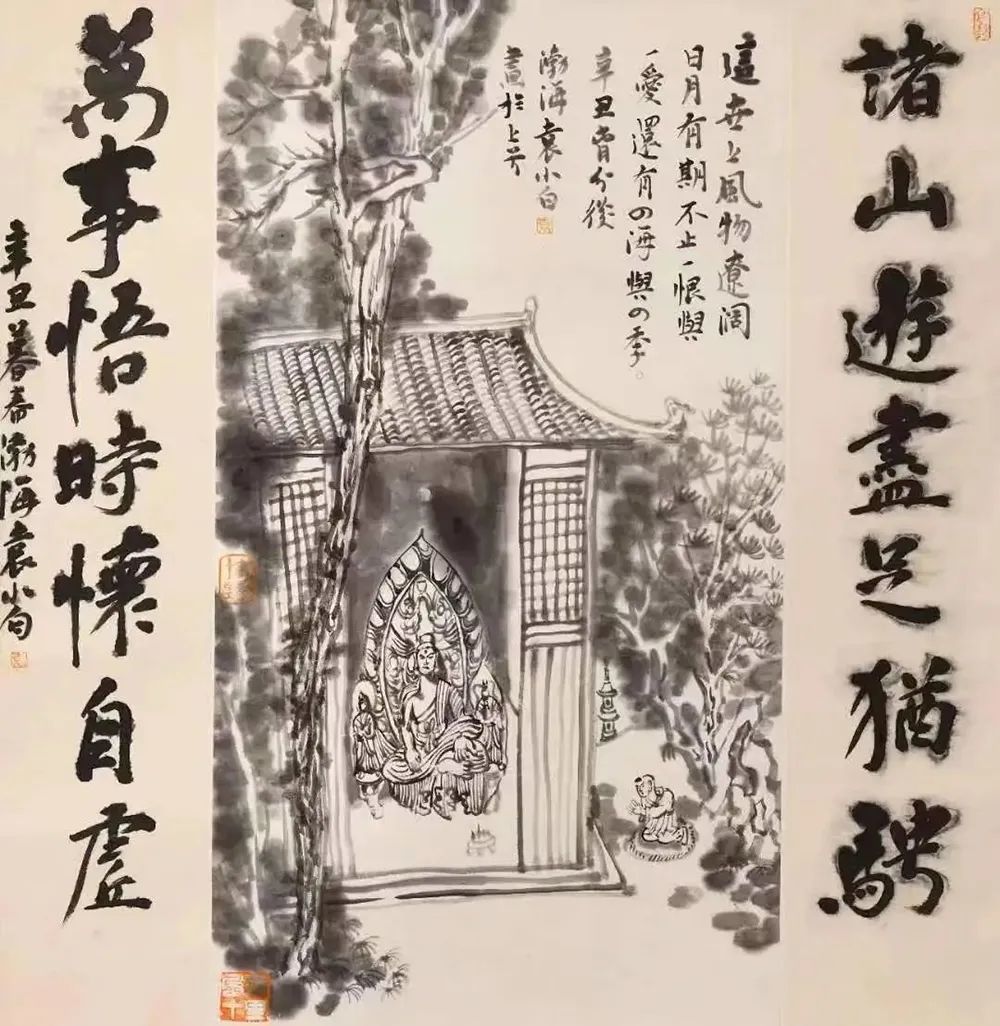 諸山遊盡足猶騁
這世上風物遼闊
日月有期不止一恨與
一愛還有四海與四季。
辛丑宵分後
渤海袁小白
畫於上方
萬事悟時懷自虛
辛丑暮春渤海袁小白